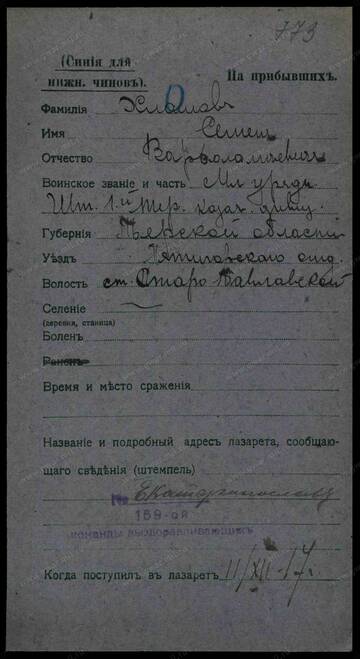 773
(Синія для
нижн. чиновъ).
На прибывшихъ.
Фамилія Хлыновъ
Имя Семенъ
Отчество Варфоломеевичъ
Воинское званіе и часть Мл. урядн.
Шт. 1-й Тер. казач. дивиз.
Губернія Терской области
Уѣздъ Пятиговскаго отд.
Волость ст. Старо Павлавской
Селеніе
(деревня, станица)
Боленъ
Раненъ
Время и мѣсто сраженія
Названіе и подробный адресъ лазарета, сообщаю-
щаго свѣдѣнія (штемпель)
Екатеринославъ
159-ой
команды выздоравливающихъ
Когда поступилъ въ лазаретъ 11/XII-17г.